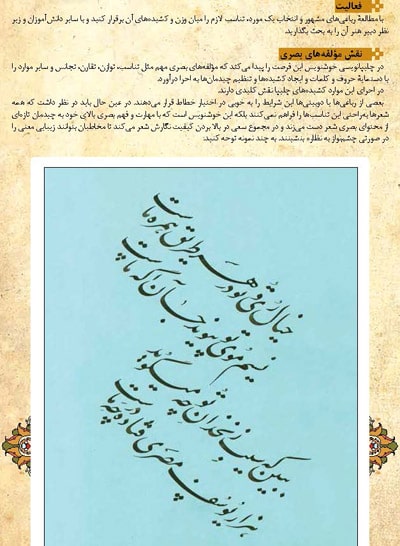 فعالیت
با مطالعهٔ رباعی‌های مشهور و انتخاب یک مورد، تناسب لازم را میان وزن و کشیده‌های آن برقرار کنید و با سایر دانش‌آموزان و زیر
نظر دبیر هنر آن را به بحث بگذارید.
نقش مؤلفه‌های بصری
در چلیپانویسی خوشنویس این فرصت را پیدا می‌کند که مؤلفه‌های بصری مهم مثل تناسب، توازن، تقارن، تجانس و سایر موارد را
با دستمایهٔ حروف و کلمات و ایجاد کشیده‌ها و تنظیم چیدمان‌ها به اجرا درآورد.
در اجرای این موارد کشیده‌های چلیپا نقش کلیدی دارند.
بعضی از رباعی‌ها یا دوبیتی‌ها این شرایط را به خوبی در اختیار خطاط قرار می‌دهند. در عین حال باید در نظر داشت که همه
شعرها به‌راحتی این تناسب‌ها را فراهم نمی‌کنند بلکه این خوشنویس است که با مهارت و فهم بصری بالای خود به چیدمان تازه‌ای
از محتوای بصری شعر دست می‌زند و در مجموع سعی در بالا بردن کیفیت نگارش شعر می‌کند تا مخاطبان بتوانند زیبایی معنی را
در صورتی چشم‌نواز به نظاره بنشینند. به چند نمونه توجه کنید:
خیال روی تو در هر طریق همره ماست
نسیم موی تو پیوند جان آگه ماست
ببین که سیب زنخدان تو چه میگوید
هزار یوسف مصری فتاده در چه ماست